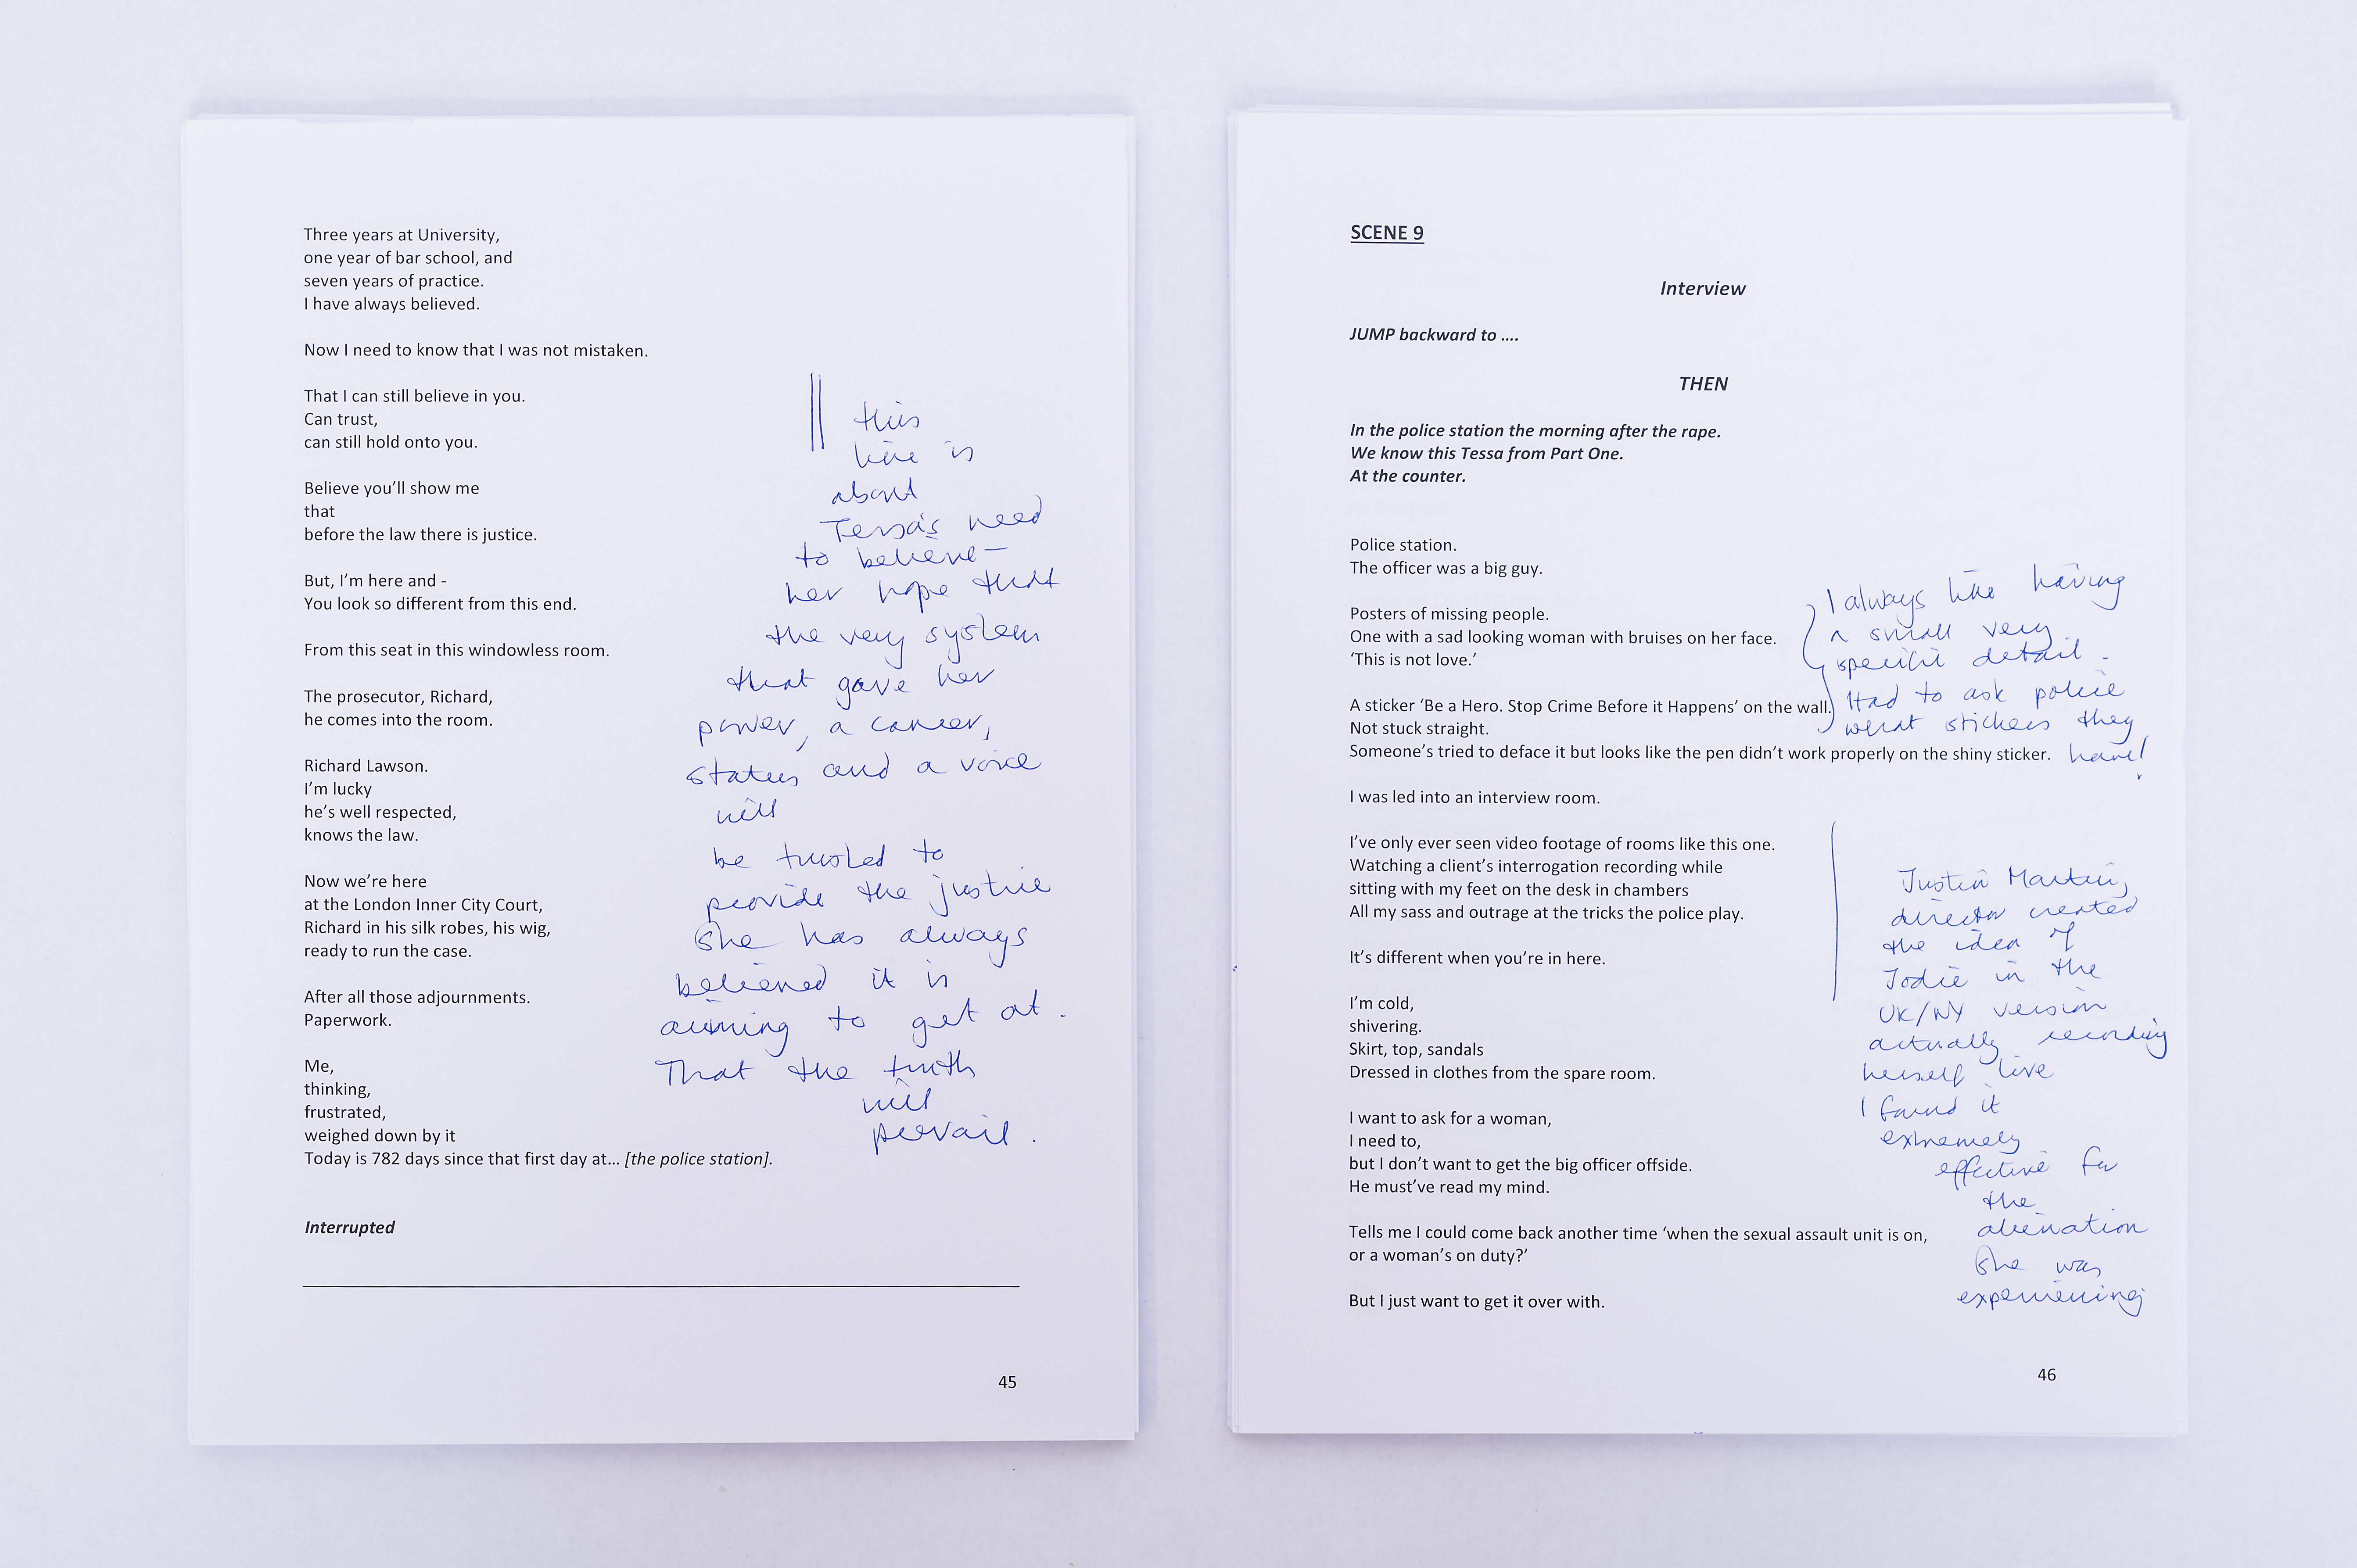 Three years at University,
one year of bar school, and
seven years of practice.
I have always believed.
Now I need to know that I was not mistaken.
That I can still believe in you.
Can trust,
can still hold onto you.
Believe you'll show me
that
before the law there is justice.
But, I'm here and -
You look so different from this end.
From this seat in this windowless room.
The prosecutor, Richard,
he comes into the room.
Richard Lawson.
I'm lucky
he's well respected,
knows the law.
Now we're here
at the London Inner City Court,
Richard in his silk robes, his wig,
ready to run the case.
After all those adjournments.
Paperwork.
Me,
thinking,
frustrated,
weighed down by it
Today is 782 days since that first day at… [the police station].
Interrupted
this
line is
about
Tessa's need
to believe –
her hope that
the very system
that gave her
power, a career,
status and a voice
will
be trusted to
provide the justice
She has always
believed it is
aiming to get at.
That the truth
will
prevail.
45
SCENE 9
Interview
JUMP backward to ....
THEN
In the police station the morning after the rape.
We know this Tessa from Part One.
At the counter.
Police station.
The officer was a big guy.
Posters of missing people.
One with a sad looking woman with bruises on her face.
'This is not love.'
A sticker 'Be a Hero. Stop Crime Before it Happens' on the wall.
Not stuck straight.
Someone's tried to deface it but looks like the pen didn't work properly on the shiny sticker.
I was led into an interview room.
I've only ever seen video footage of rooms like this one.
Watching a client's interrogation recording while
sitting with my feet on the desk in chambers
All my sass and outrage at the tricks the police play.
It's different when you're in here.
I'm cold,
shivering.
Skirt, top, sandals
Dressed in clothes from the spare room.
I want to ask for a woman,
I need to,
but I don't want to get the big officer offside.
He must've read my mind.
Tells me I could come back another time 'when the sexual assault unit is on,
or a woman's on duty?'
But I just want to get it over with.
I always like having
a small very
specific detail.
Had to ask police
what stickers they
have!
Justin Martin,
director created
the idea of
Jodie in the
UK/NY version
actually recording
herself live
I found it
extremely
effective for
the
alienation
She was
experiencing
46